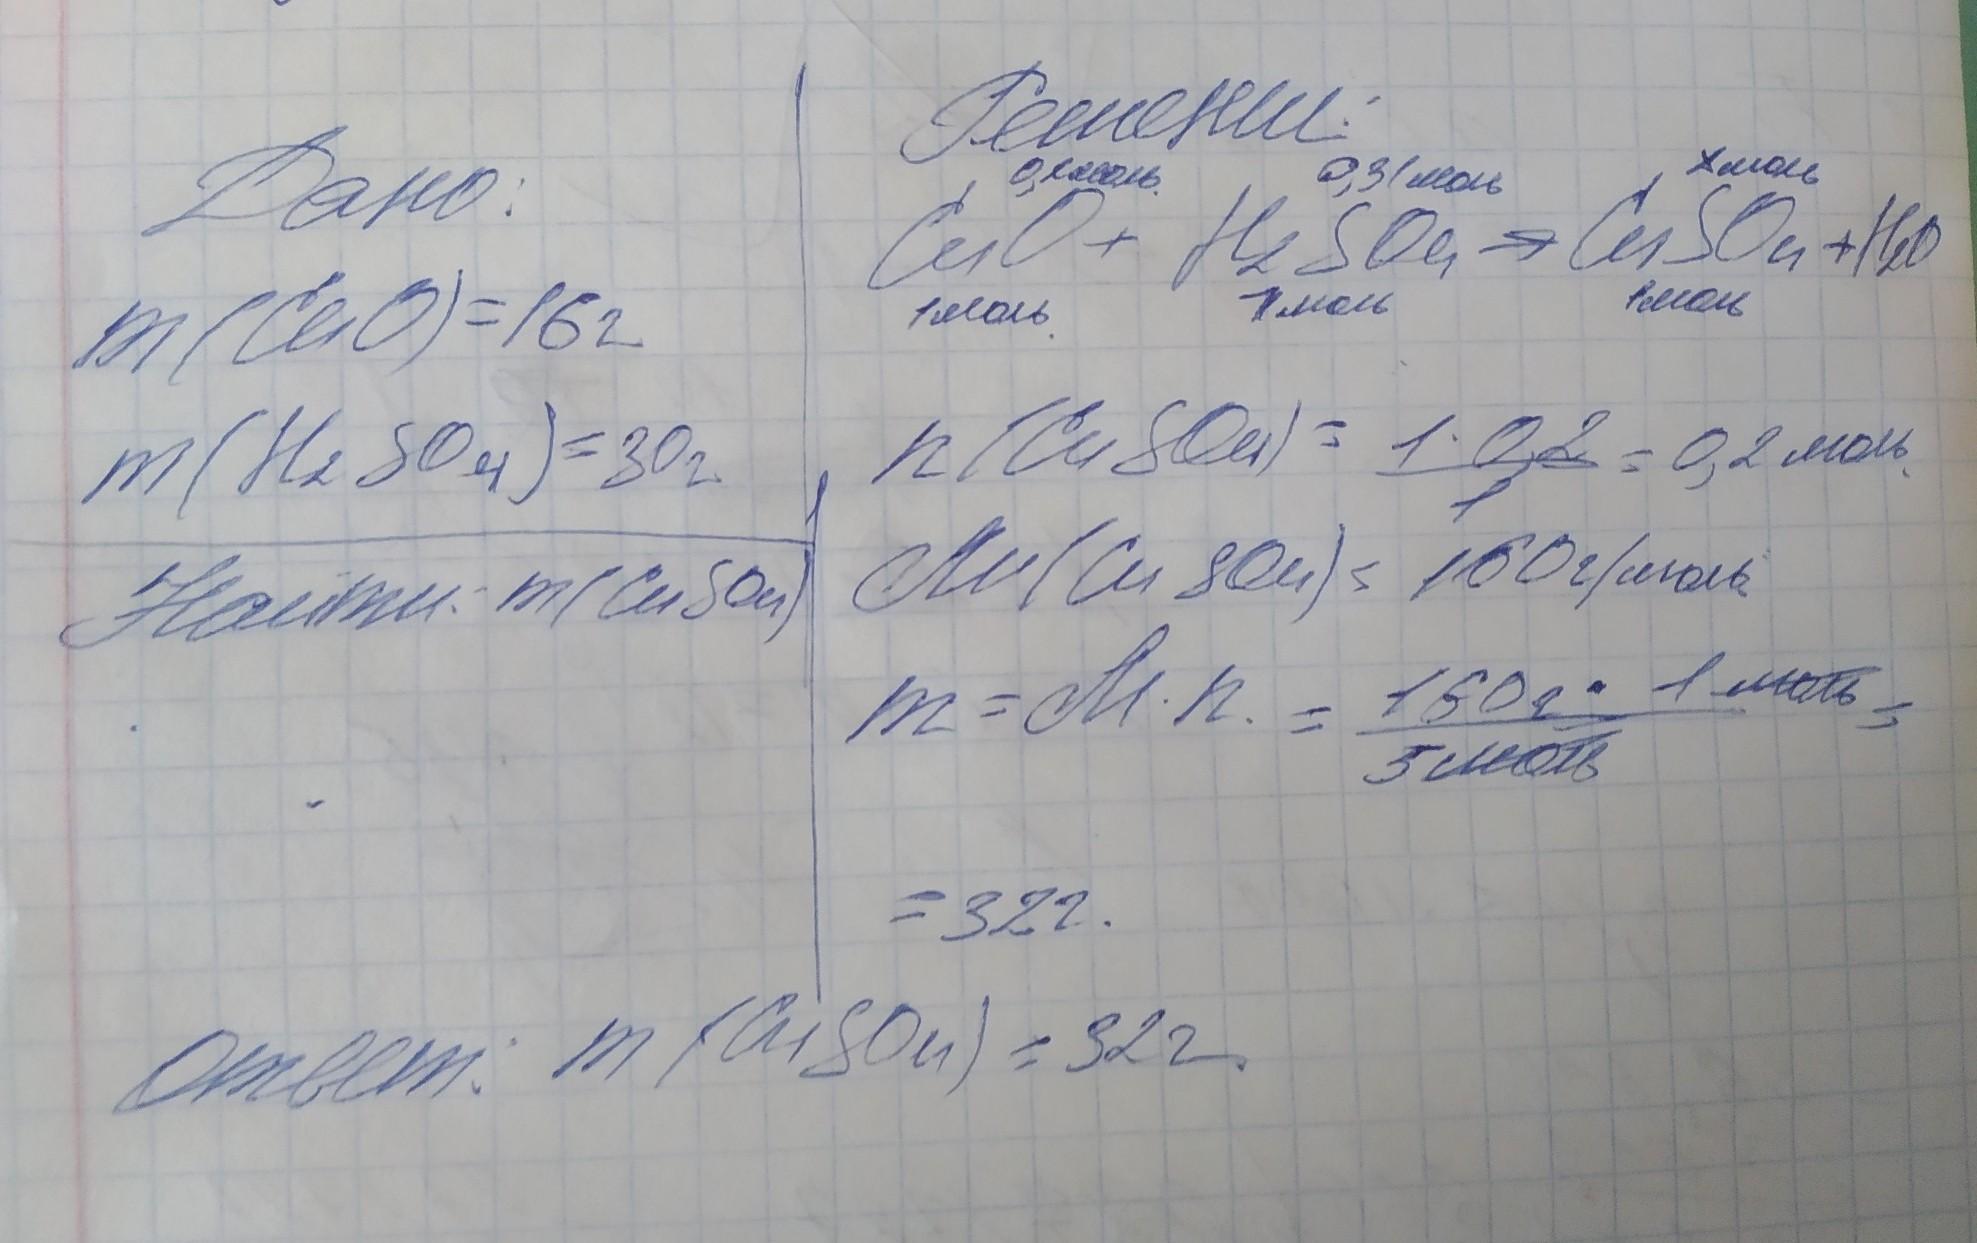 Дано:
m(CuO)=16г
m(H2SO4)=30г
Найти: m(CuSO4)
Решени:
0,2моль 0,31моль xмоль
CuO + H2SO4 => CuSO4 + H2O
1моль 1моль 1моль
n(CuSO4) = 1·0,2 = 0,2 моль.
1
M(CuSO4) = 160г/моль
m = M·n. = 160г · 1 моль =
5 моль
= 32г.
Ответ: m(CuSO4) = 32г.